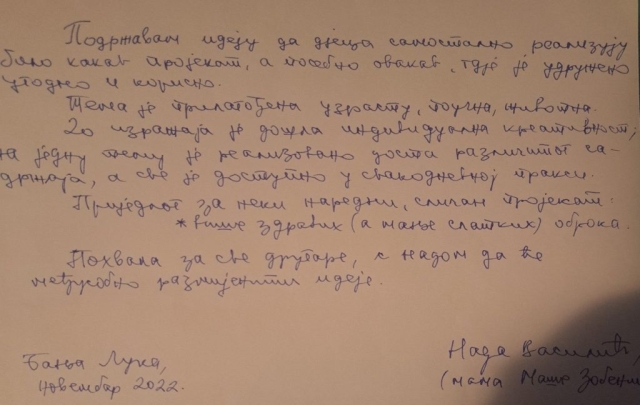 Подржавам идеју да дјеца самостално реализују
било какав пројекат, а посебно овакав, гдје је удружено
угодно и корисно.
Тема је прилагођена узрасту, поучна, животна.
До изражаја је дошла индивидуална креативност;
на једну тему је реализовано доста различитог са-
држаја, а све је доступно у свакодневној пракси.
Приједлог за неки наредни, сличан пројекат:
* више здравих (а мање слатких) оброка.
Похвала за све другаре, с надом да ће
међусобно размијенити идеје.
Бања Лука,
новембар 2022.
Нада Василић,
(мама Маше